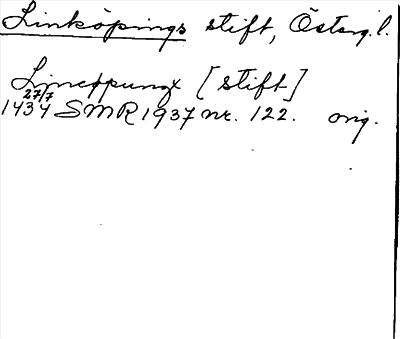 Linköpings stift, Östergl.
Lincøpungx [stift]
27/7
1434 SMR 1937 nr. 122. orig.